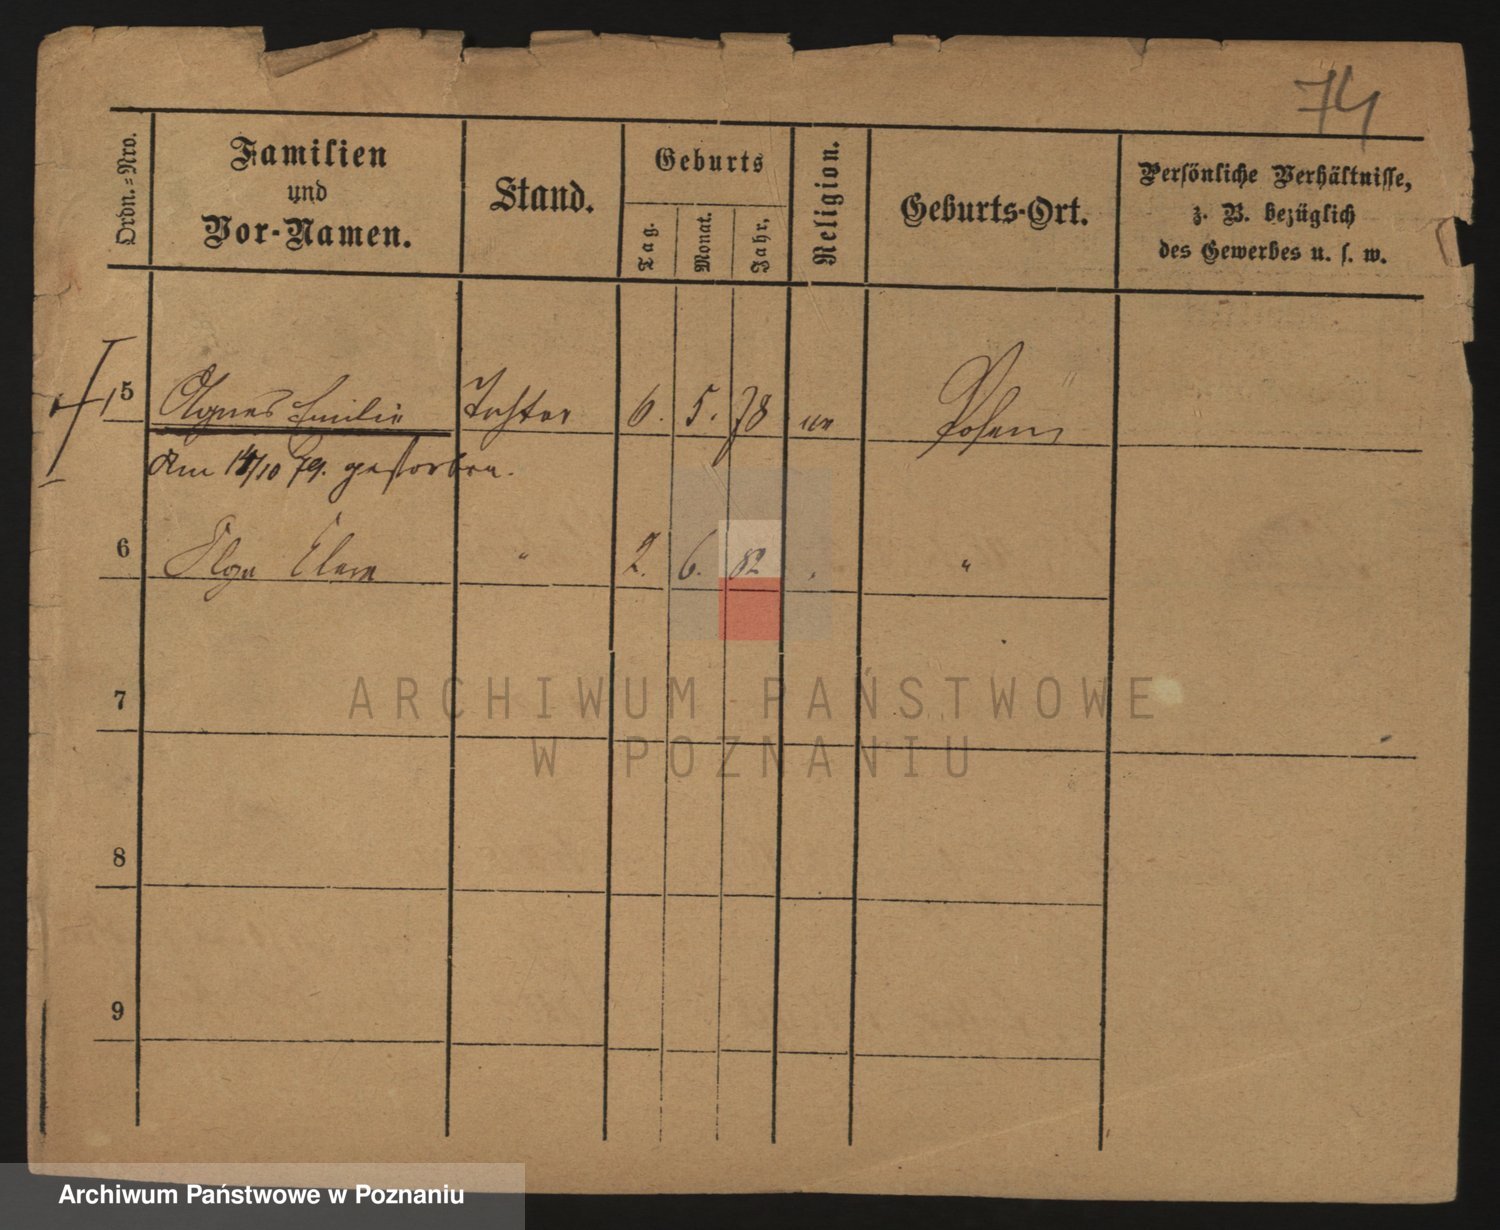 74
Ordn.=Nro.
Familien
und
Vor-Namen.
Stand.
Geburts
Tag.
Monat.
Jahr,
Religion.
Geburts-Ort.
Persönliche Verhältnisse,
z. B. bezüglich
des Gewerbes u. s. w.
5 Agnes Emilie Tochter 6. 5. 78 ev Posen
Am 14/10 79. gestorben.
6 Olga Clara " 2. 6. 82 " "
7
ARCHIWUM PAŃSTWOWE
W POZNANIU
8
9
Archiwum Państwowe w Poznaniu